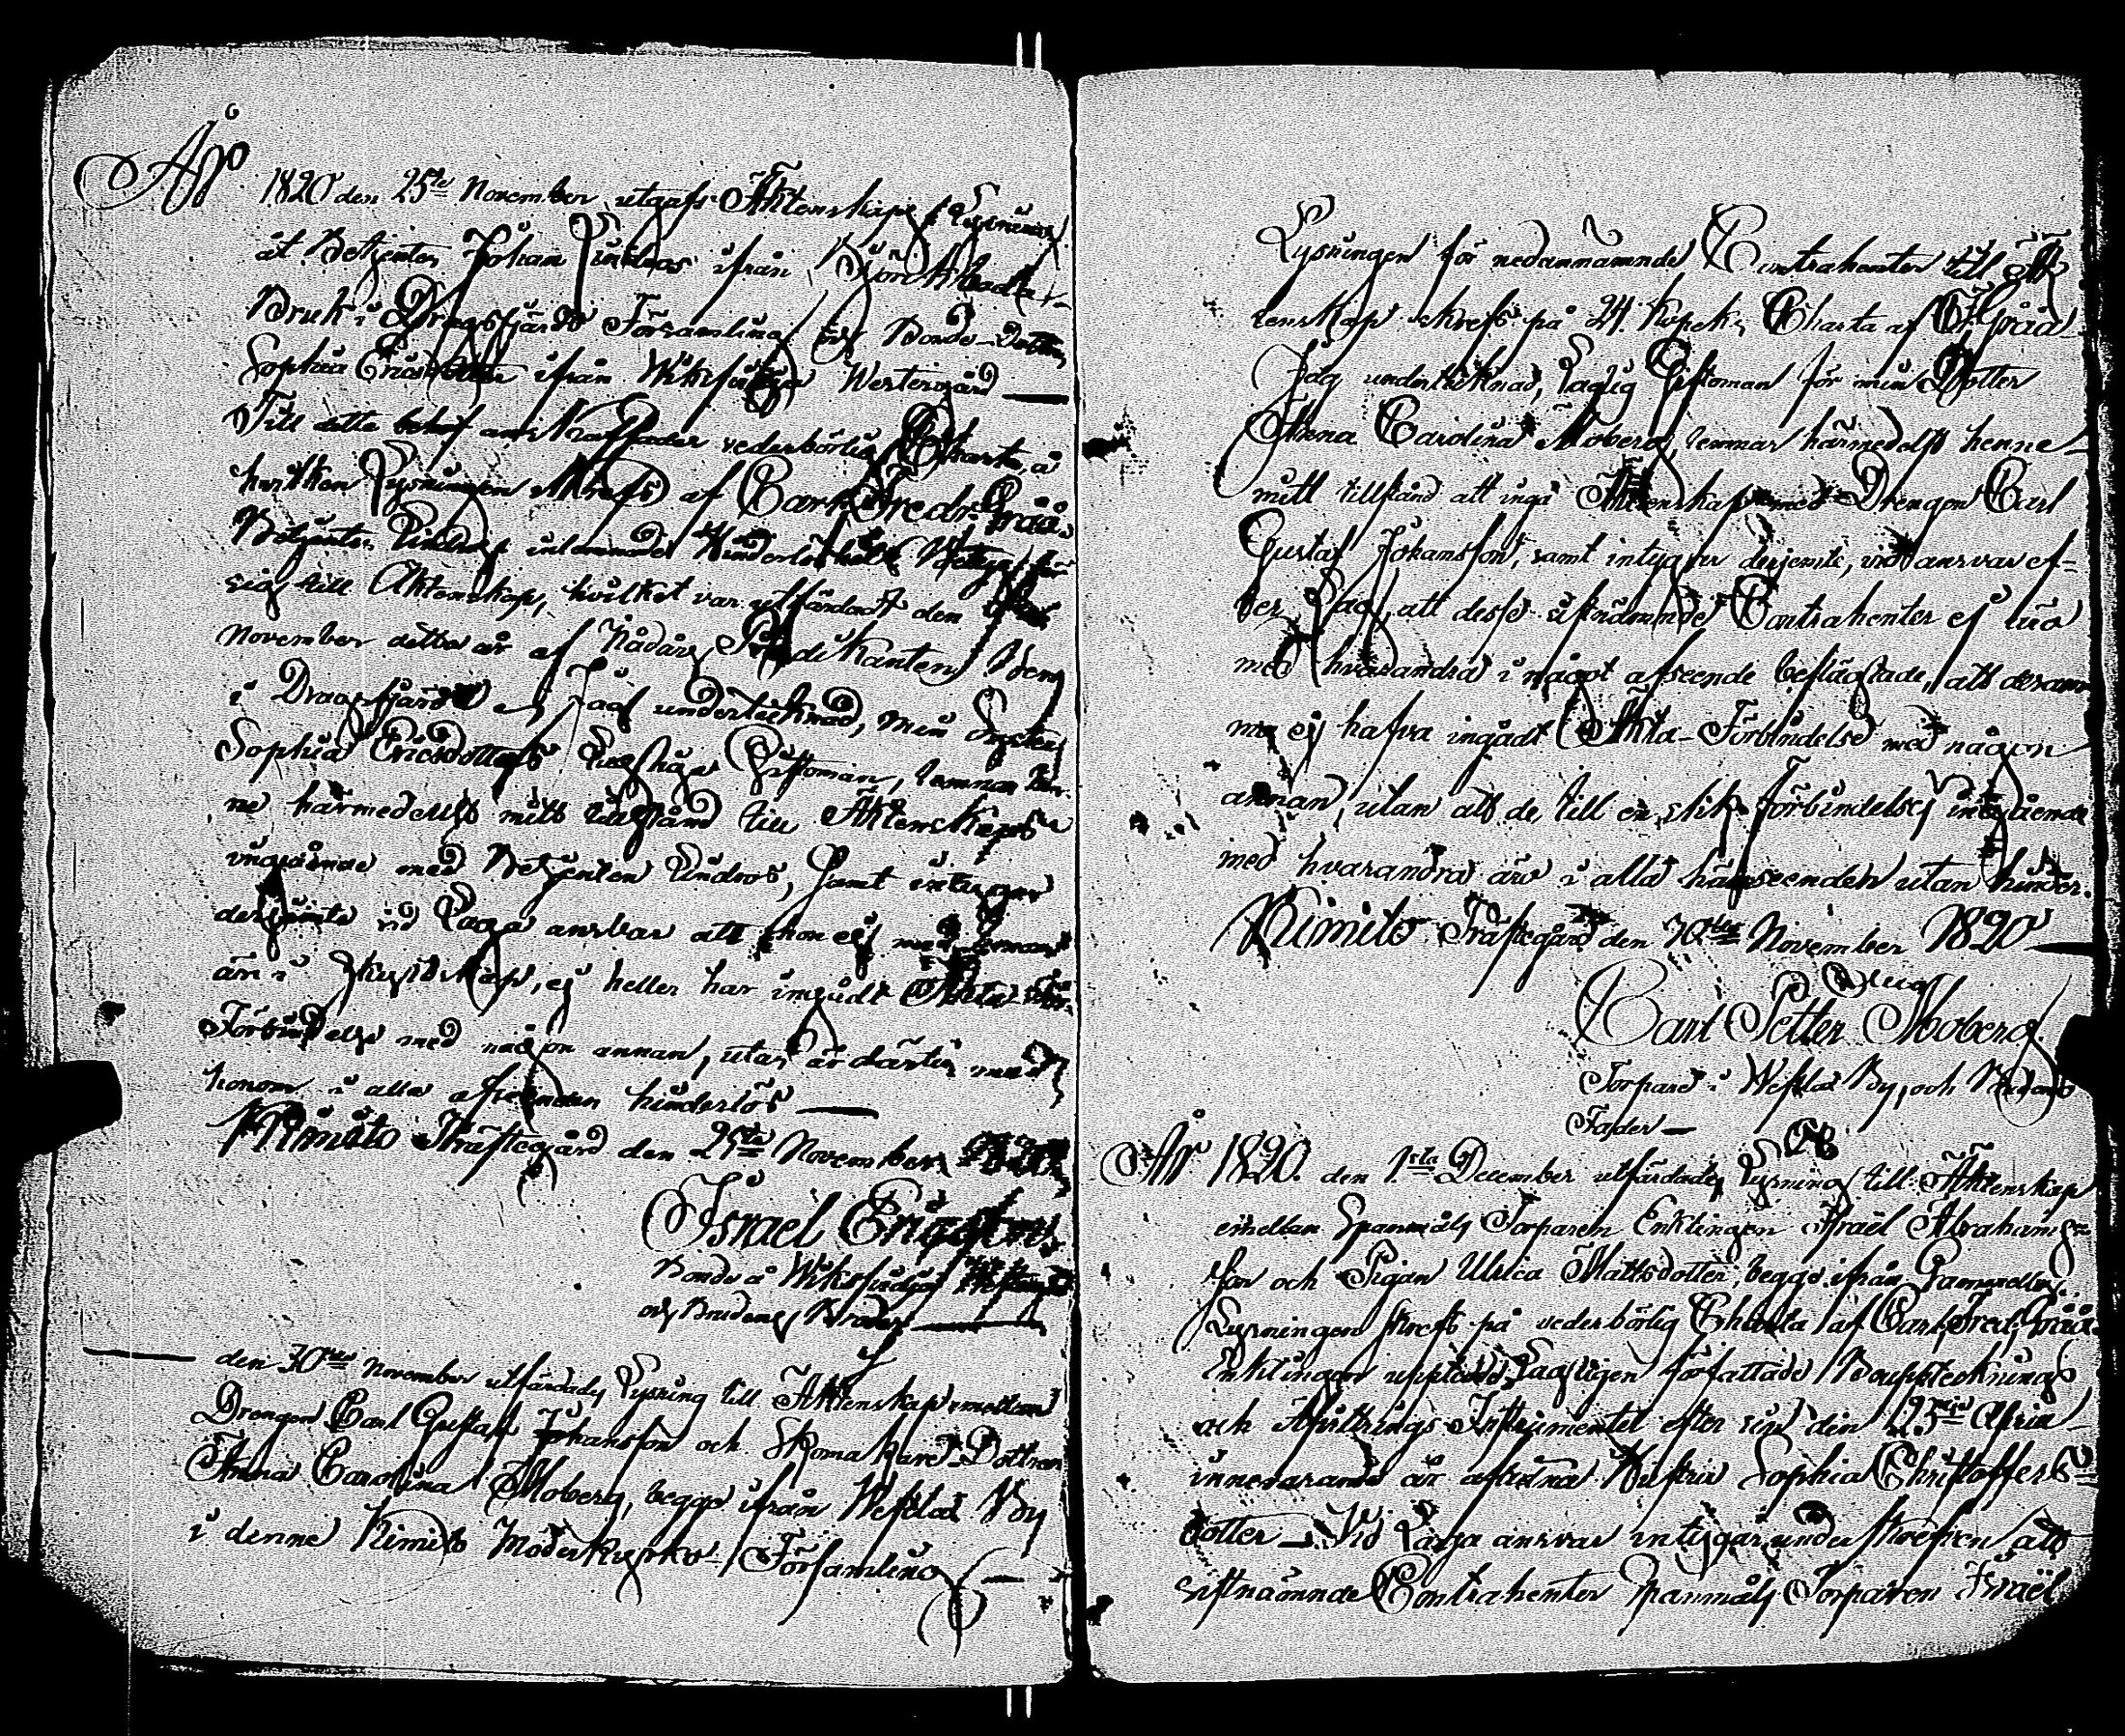 År 1820 den 25te November utgafs Äktenskaps Lysning
åt Betjenten Johan Lindros ifrån Björkboda
Bruk i Dragsfjärds Församling och Bonde-Dottren
Sophia Ericsdotter ifrån Wiksfidja Westergård
Till detta behof anskaffades vederbörlig Charta, å
hvilken Lysningen skrefs af Carl Fredr. Gråå.
Betjenten Lindros inlemnade Hinderlöshets Betyg för
sig till Äktenskap, hvilket var utfärdadt den
November detta år af Nådårs Predikanten
i Dragsfjärd Jag undertecknad, min Syster
Sophia Ericsdotters Laglige Giftoman, lemnar hen-
ne härmedelst mitt tillstånd till Äktenskaps
ingående med Betjenten Lindros, samt intygar
derjemte vid Laga ansvar att hon ej med honom
är i Skyldskap, ej heller har ingådt Ächta
Förbindelse med någon annan, utan är därtill med
honom i alla afseenden hinderlös
Kimito Prästegård den 25te November 1820
Israel Ericsson
Bonde å Wiksfidja Westergård
och Brudens Broder
den 30te November utfärdades Lysning till Äktenskap emellan
Drengen Carl Gustaf Johansson och Skomakare Dottren
Anna Carolina Moberg, begge ifrån Westlax By
i denne Kimito Moderkyrko-Församling
Lysningen för nedannämnde Contrahenter till Äk-
tenskap skrefs på 24 Kopek: Charta af CF Gråå
Jag undertecknad, Laglig Giftoman för min Dotter
Anna Carolina Moberg, lemnar härmedelst henne
mitt tillstånd att ingå Äktenskap med Drengen Carl
Gustaf Johansson, samt intygar derjemte, vid ansvar ef-
ter Lag, att desse sistnämnde Contrahenter ej äro
med hvarandra i något afseende beslägtade, att
ej hafva ingådt Ächta-Förbindelse med någon
annan, utan att de till en slik förbindelses ingående
med hvarandra äro i alla hänseenden utan hinder.
Kimito Prästegård den 30te November 1820
Carl Petter Moberg
Torpare i Westlax By, och Brudens
Fader
År 1820. den 1sta December utfärdades Lysning till Äktenskap
emellan Spanmåls Torparen Enklingen Israël Abrahams-
son och Pigan Ulrica Mattsdotter, begge ifrån Gammelby.
Lysningen skrefs på vederbörlig Charta af Carl Fred. Gråå.
Enklingen uppteedde Lagligen författade Bouppteknings
och Afvittrings Instrumentet efter sin den 23die April
innevarande år aflidna Hustru Sophia Christoffers-
dotter Vid Laga ansvar intygar underskrefven att
sistnämnde Contrahenter Spanmåls Torparen Israël